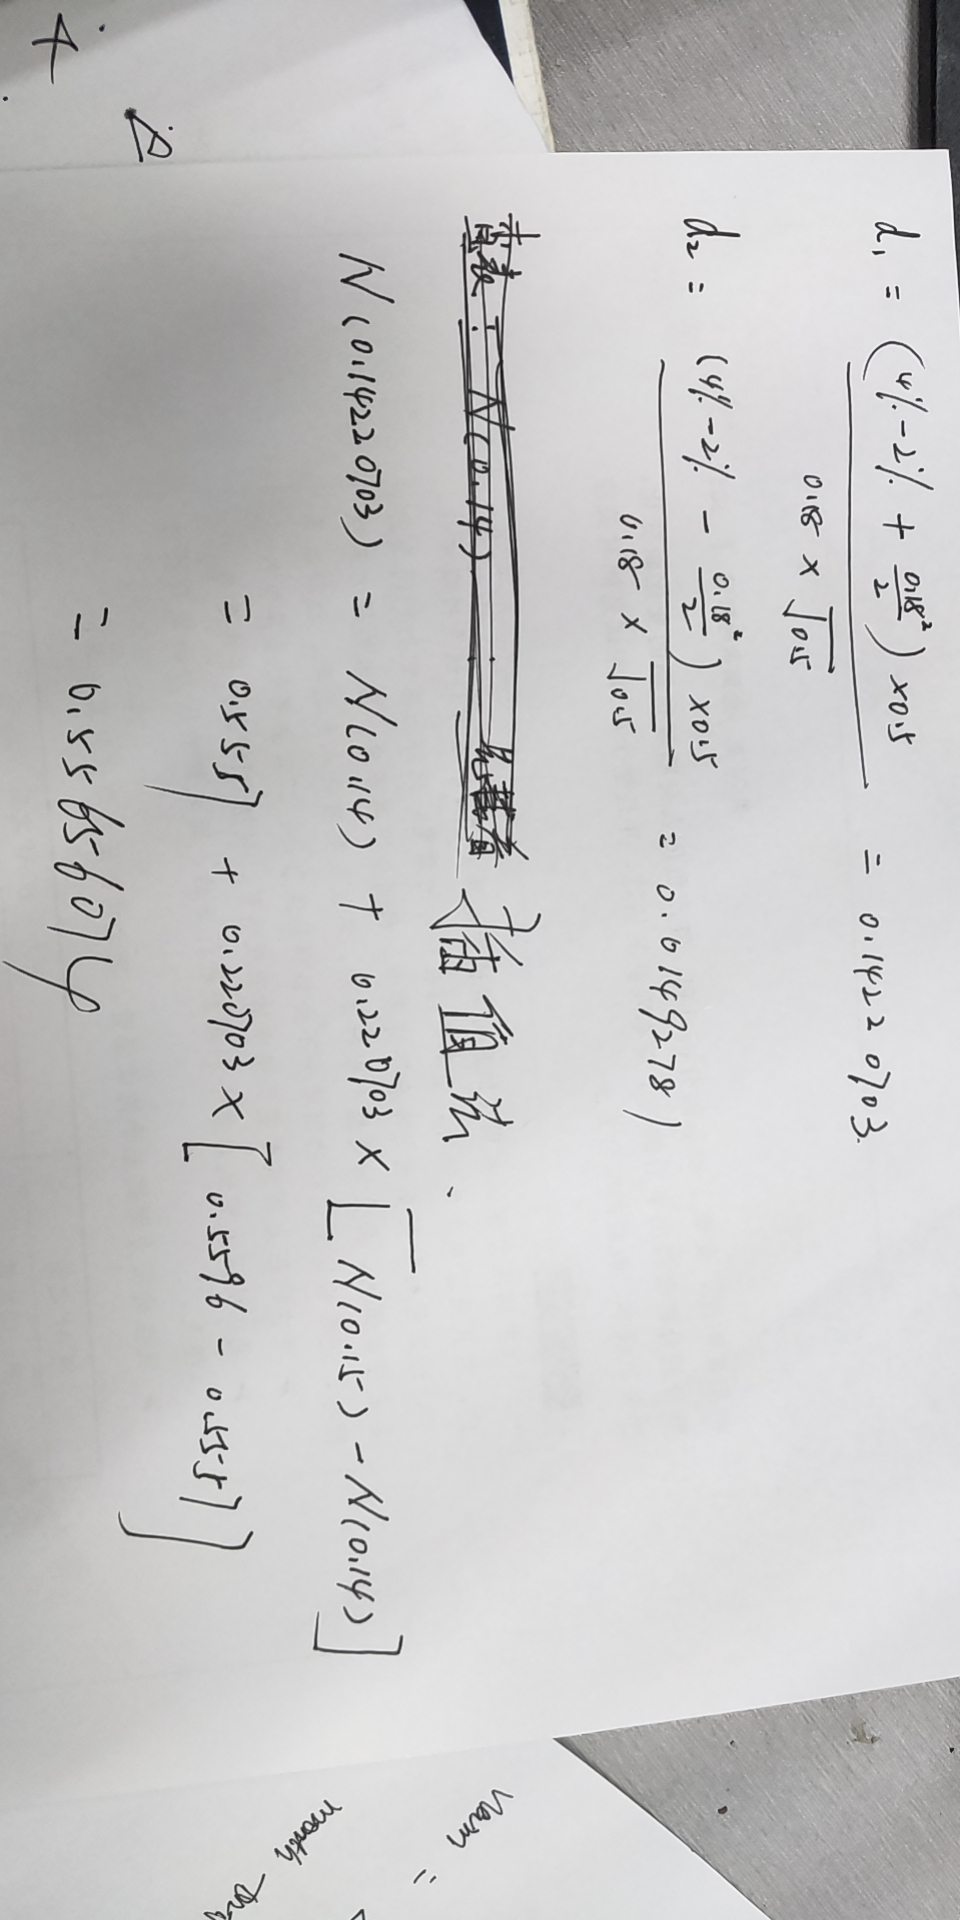 d₁ = (4% - 2% + 0.18²/2) × 0.5 / 0.18 × √0.5 = 0.14220703
d₂ = (4% - 2% - 0.18²/2) × 0.5 / 0.18 × √0.5 = 0.0149278)
查表: N(0.14)
插值法.
N(0.14220703) = N(0.14) + 0.220703 × [N(0.15) - N(0.14)]
= 0.5557 + 0.220703 × [0.5596 - 0.5557]
= 0.55656074
month